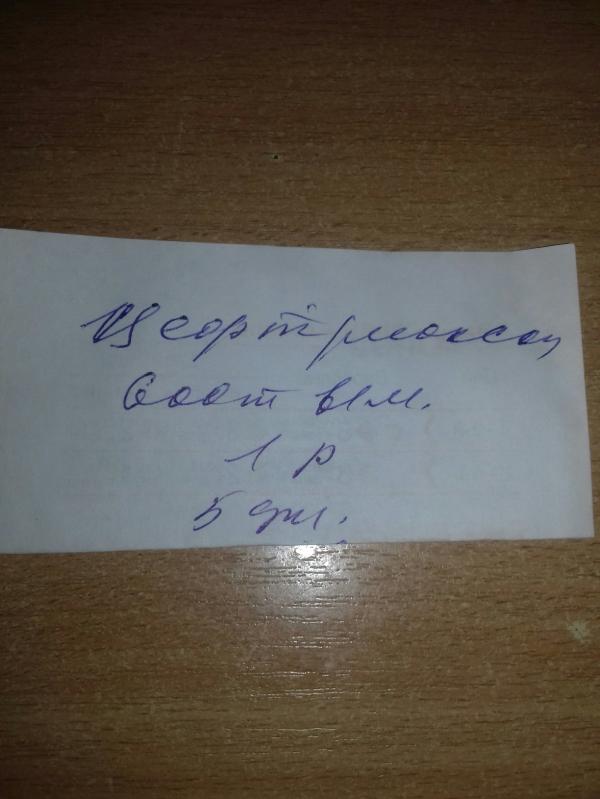 Цефтриаксон
600 mг в/м.
1 р
5 дн.